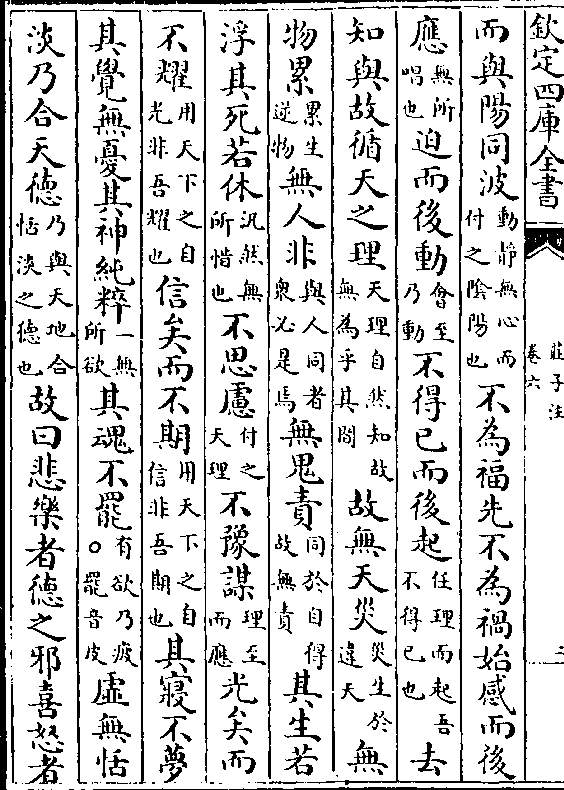 欽定四庫全書
莊子注
卷六
二
而與陽同波動靜無心而付之陰陽也不為福先不為禍始感而後
應無所唱也迫而後動會至乃動不得已而後起任理而起吾不得已也去
知與故循天之理天理自然知故無為乎其間故無天災災生於違天無
物累累生逆物無人非與人同者衆必是焉無鬼責同於自得故無責其生若
浮其死若休汎然無所惜也不思慮付之天理不豫謀理至而應光矣而
不耀用天下之自光非吾耀也信矣而不期用天下之自信非吾期也其寢不夢
其覺無憂其神純粹一無所欲其魂不罷有欲乃疲○罷音皮虛無恬
淡乃合天德乃與天地合恬淡之德也故曰悲樂者德之邪喜怒者